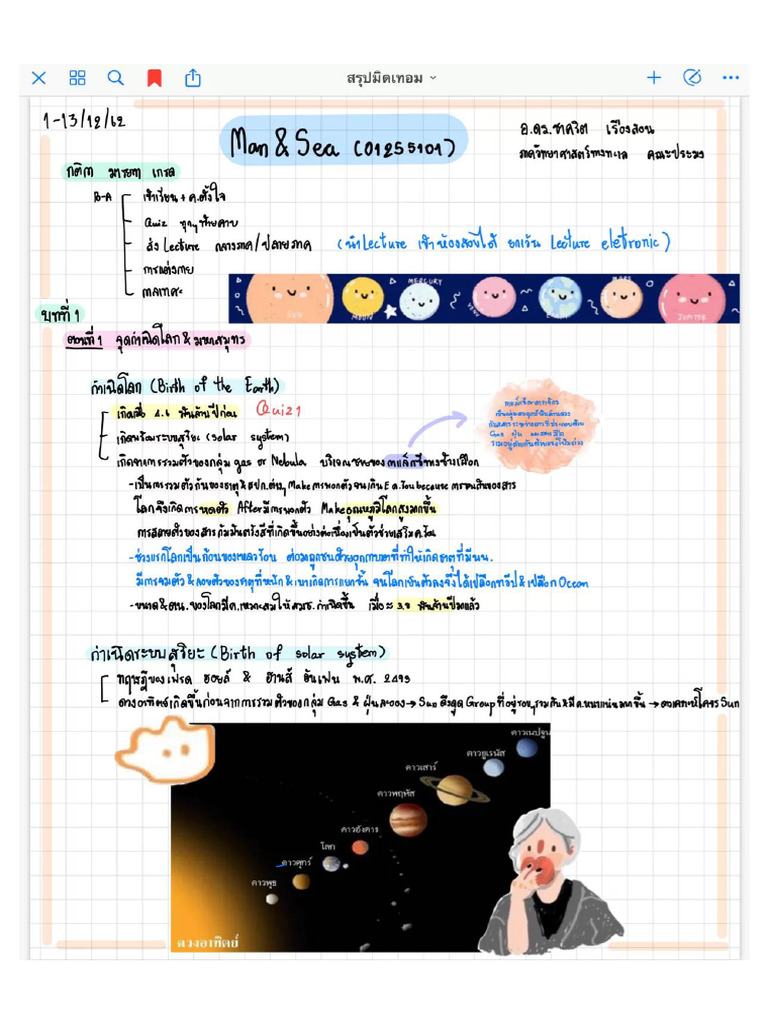 สรุปมิดเทอม
1-13/12/62
Man & Sea (01255101)
อ.ดร.ชาคริต เรืองสอน
ภาควิทยาศาสตร์ทางทะเล คณะประมง
กติกา มารยาท เกรด
B-A เข้าเรียน + ค.ตั้งใจ
Quiz ทุกๆท้ายคาบ
ส่ง Lecture กลางภาค/ปลายภาค (นำLecture เข้าห้องสอบได้ ยกเว้น Lecture eletronic)
การแต่งกาย
กาลเทศะ
SUN MOON MERCURY VENUS EARTH MARS JUPITER
บทที่ 1
ตอนที่ 1 จุดกำเนิดโลก & มหาสมุทร
กำเนิดโลก (Birth of the Earth)
เกิดเมื่อ 4.6 พันล้านปีก่อน Quiz1
เกิดพร้อมระบบสุริยะ (solar system)
เกิดจากการรวมตัวของกลุ่ม gas or Nebula บริเวณชายของกาแล็กซีทางช้างเผือก
Gas ฝุ่น
-เป็นการรวมตัวกันของธาตุ & สปก.ต่างๆ Make การหดตัวจนเกิน E ค.ร้อน because การชนกันของสาร
โลกจึงเกิดการหดตัว After มีการหดตัว Make อุณหภูมิโลกสูงมากขึ้น
การสลายตัวของสารกัมมันตรังสีที่เกิดขึ้นอย่างต่อเนื่องเป็นตัวช่วยเสริม ค.ร้อน
-ช่วงแรกโลกเป็นก้อนของเหลวร้อน ต่อมาถูกชนด้วยอุกกาบาตที่ทำให้เกิดธาตุที่มีนน.
มีการจมตัว & ลอยตัวของธาตุที่หนัก & เบาเกิดการแยกชั้น จนโลกเย็นตัวลงจึงได้เปลือกทวีป & เปลือก Ocean
-ขนาด & ตน. ของโลกมีค.เหมาะสมให้สมช. กำเนิดขึ้น เมื่อ ≈ 3.8 พันล้านปีมาแล้ว
กำเนิดระบบสุริยะ (Birth of solar system)
ทฤษฎีของเฟรด ฮอยล์ & ฮานส์ อัลเฟน พ.ศ. 2493
ดวงอาทิตย์เกิดขึ้นก่อนจากการรวมตัวของกลุ่ม Gas & ฝุ่นละออง → Sun ดึงดูด Group ที่อยู่รอบๆรวมกัน & มีค.หนาแน่นมากขึ้น → ดาวเคราะห์โคจร Sun
ดาวเนปจูน
ดาวยูเรนัส
ดาวเสาร์
ดาวพฤหัส
ดาวอังคาร
โลก
ดาวศุกร์
ดาวพุธ
ดวงอาทิตย์